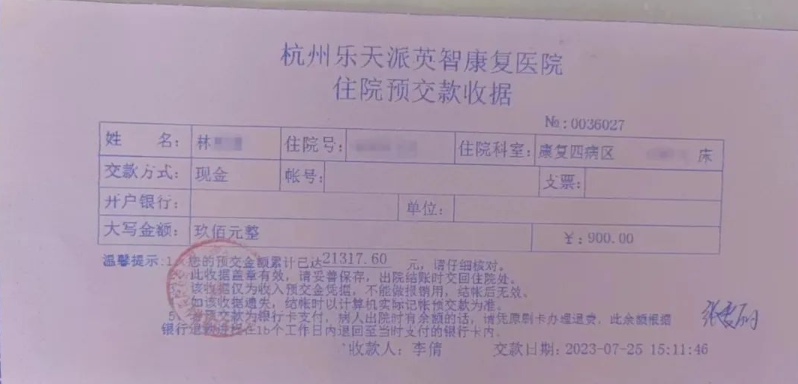 杭州乐天派英智康复医院
住院预交款收据
№:0036027
姓 名: 林 住院号: 住院科室: 康复四病区 床
交款方式: 现金 帐号: 支票:
开户银行: 单位:
大写金额: 玖佰元整 ¥: 900.00
温馨提示:1、您的预交金额累计已达21317.60 元，请仔细核对。
此收据盖章有效，请妥善保存，出院结账时交回住院处。
该收据仅为收入预交金凭据，不能做报销用，结帐后无效。
如该收据遗失，结帐时以计算机实际记帐预交款为准。
5、交款为银行卡支付，病人出院时有余额的话，请凭原刷卡办理退费，此余额根据
银行在15个工作日内退回至当时支付的银行卡内。
收款人: 李倩 交款日期: 2023-07-25 15:11:46